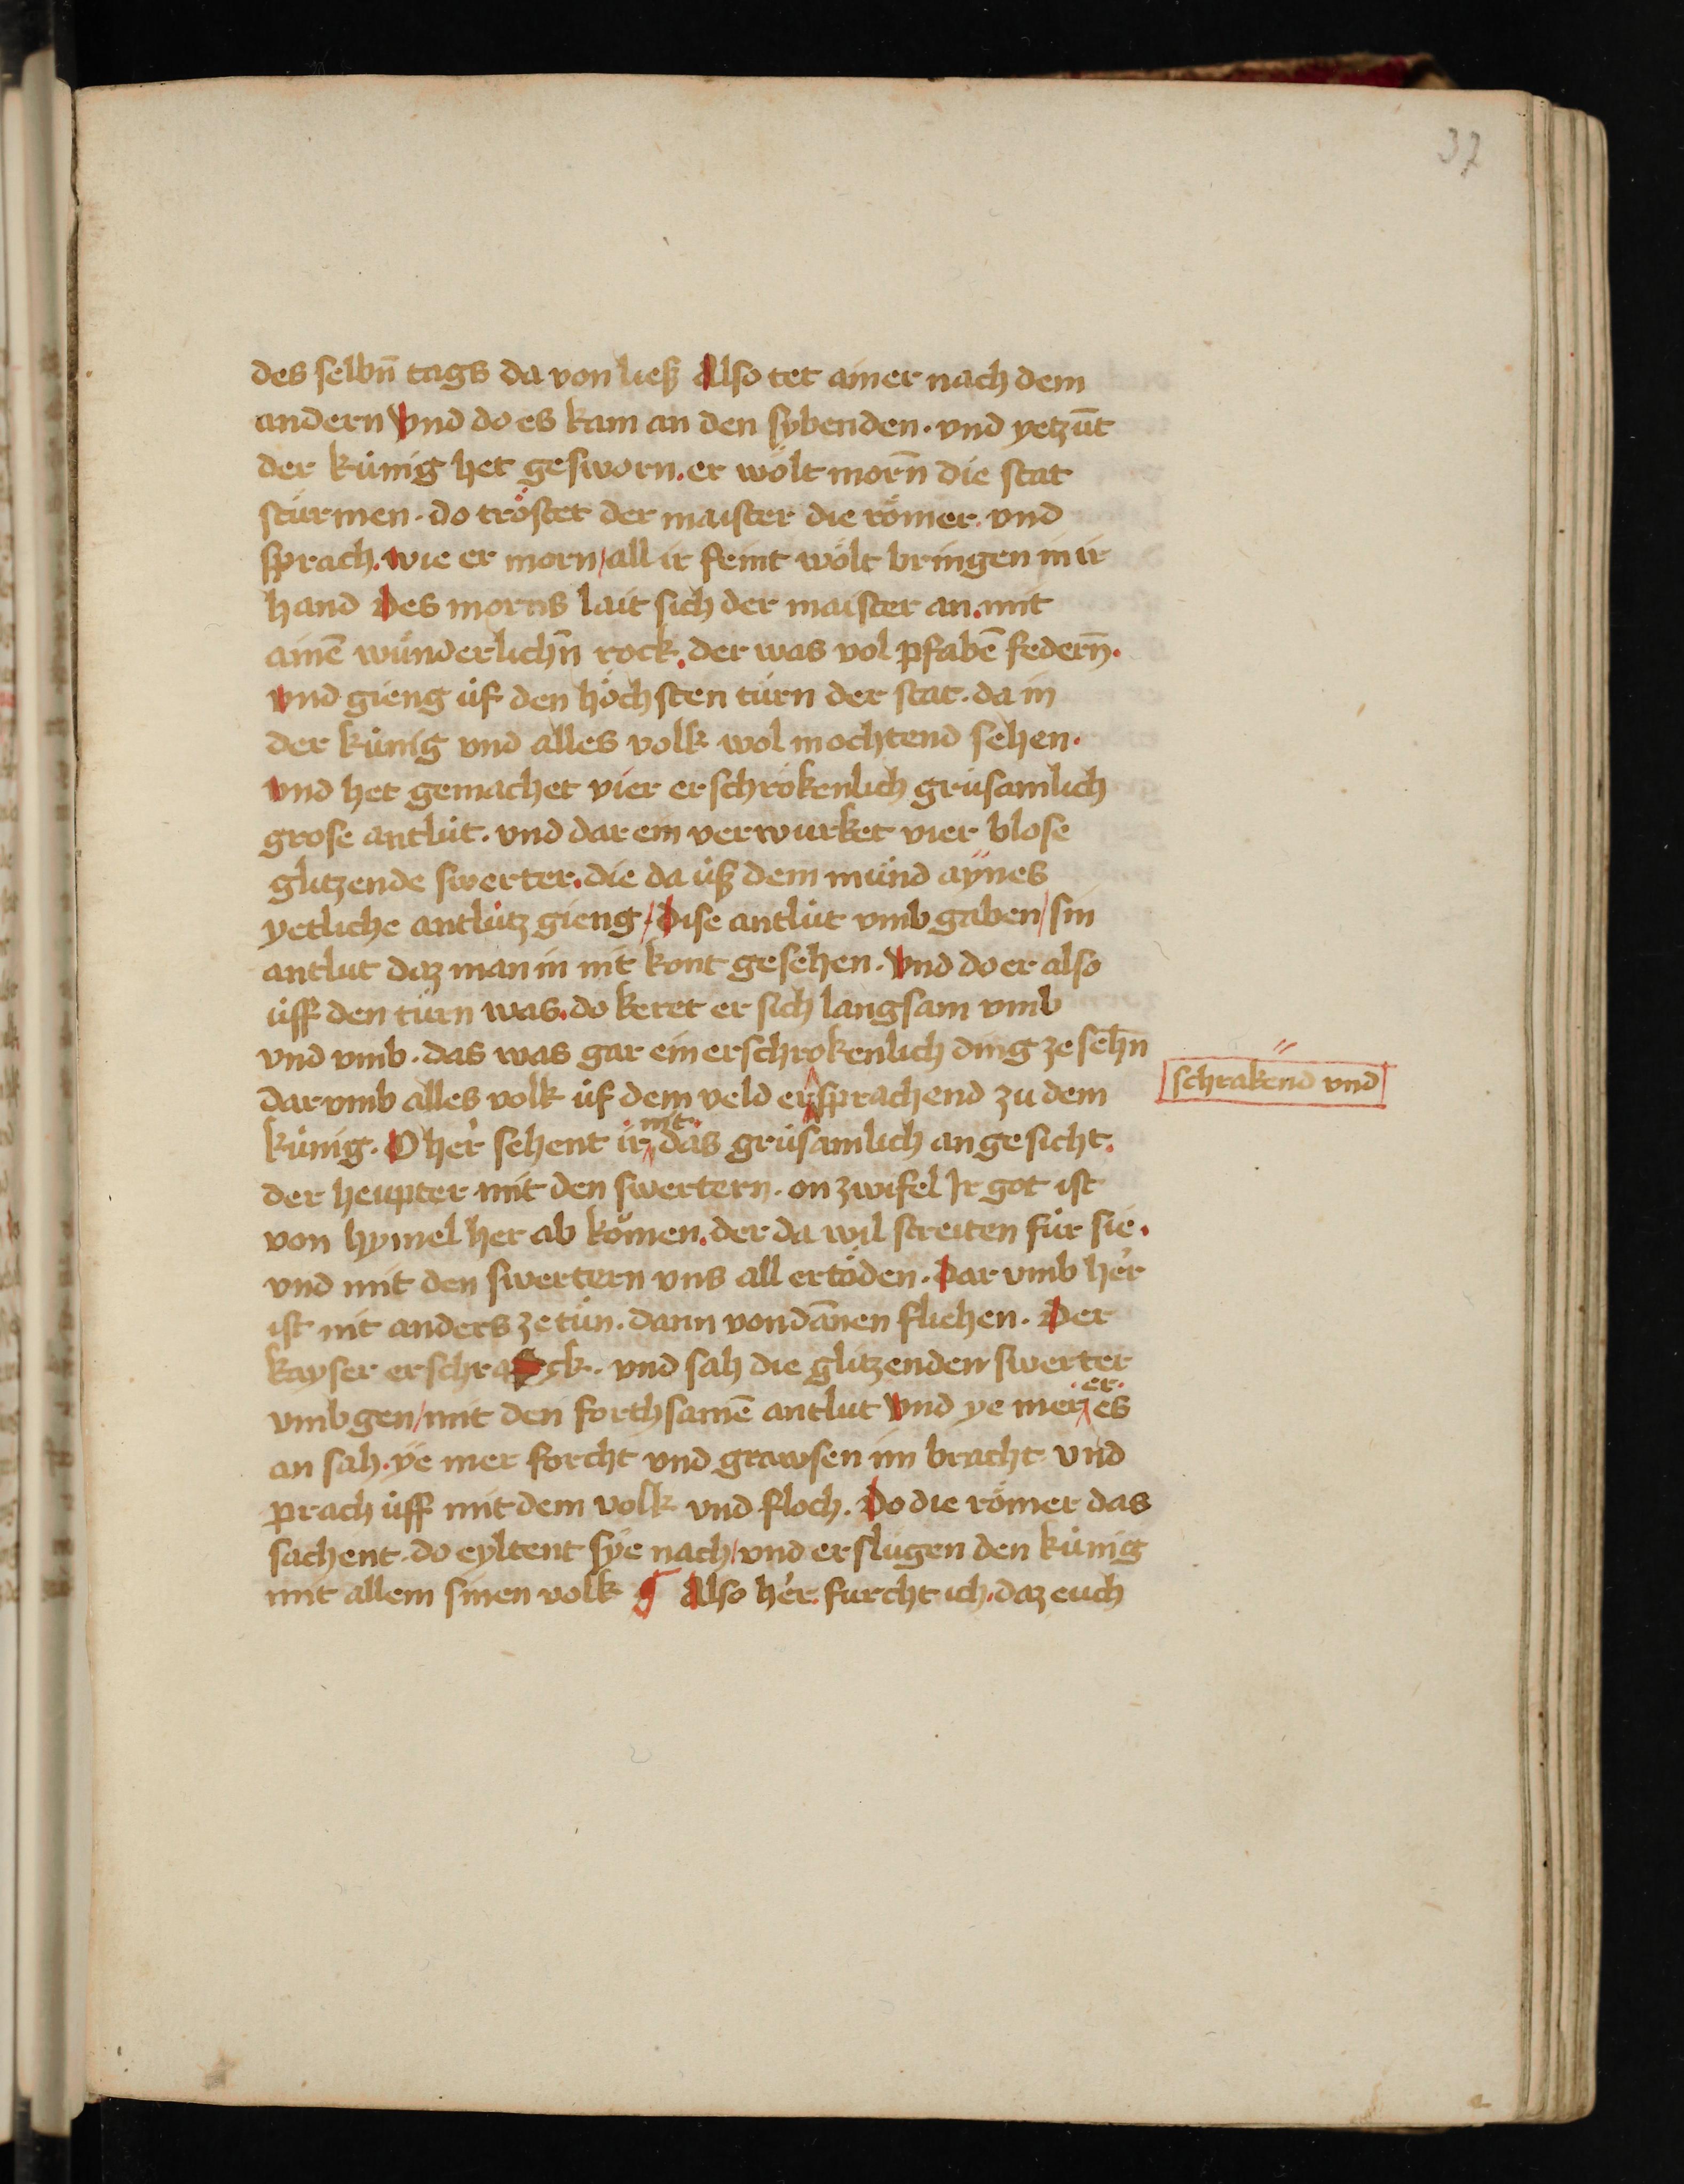 37
des selbn̄ tags da von ließ Also tet ainer nach dem
andern Vnd do es kam an den sybenden · vnd yetzūt
der kúnig het gesworn . er wölt morn̄ die stat
stúrmen · do tröstet der maister die römer · vnd
sprach . wie er morn / all ir feint wölt bringen in ir
hand Des morns lait sich der maister an . mit
ainē wúnderlichn̄ rock . der was vol pfabē federn̄ .
vnd gieng úf den höchsten túrn der stat · da in
der kúnig vnd alles volk wol mochtend sehen .
vnd het gemachet vier erschrökenlich grúsamlich
grose antlút . vnd dar ein verwurket vier blose
glitzende swerter . die da úß dem mund aÿnes
yetliche antlútz gieng / Dise antlút vmb gaben / sin
antlut daz man in nit kont gesehen . Vnd do er also
úff den túrn was . do keret er sich langsam vmb
vnd vmb · das was gar ein erschrokenlich ding ze sehn̄
dar vmb alles volk úf dem veld er sprachend zu dem
schrakend vnd
kúnig . O her sehent ir nit das grúsamlich angesicht .
der heupter mit den swertern . on zwifel Ir got ist
von hymel her ab kömen . der da wil streiten fúr sie .
vnd mit den swertern vns all ertöden . Dar vmb her
ist nit anders ze tún . dann von dānen fliehen . Der
kayser erschrack . vnd sah die glitzenden swerter
vmb gen / mit den forchsamē antlut Vnd ye mer er es
an sah . ye mer forcht vnd grawsen im bracht vnd
prach úff mit dem volk vnd floch . Do die römer das
sachent . do eyltent sÿe nach / vnd erslúgen den kúnig
mit allem sinen volk ¶ Also her furcht ich . daz euch